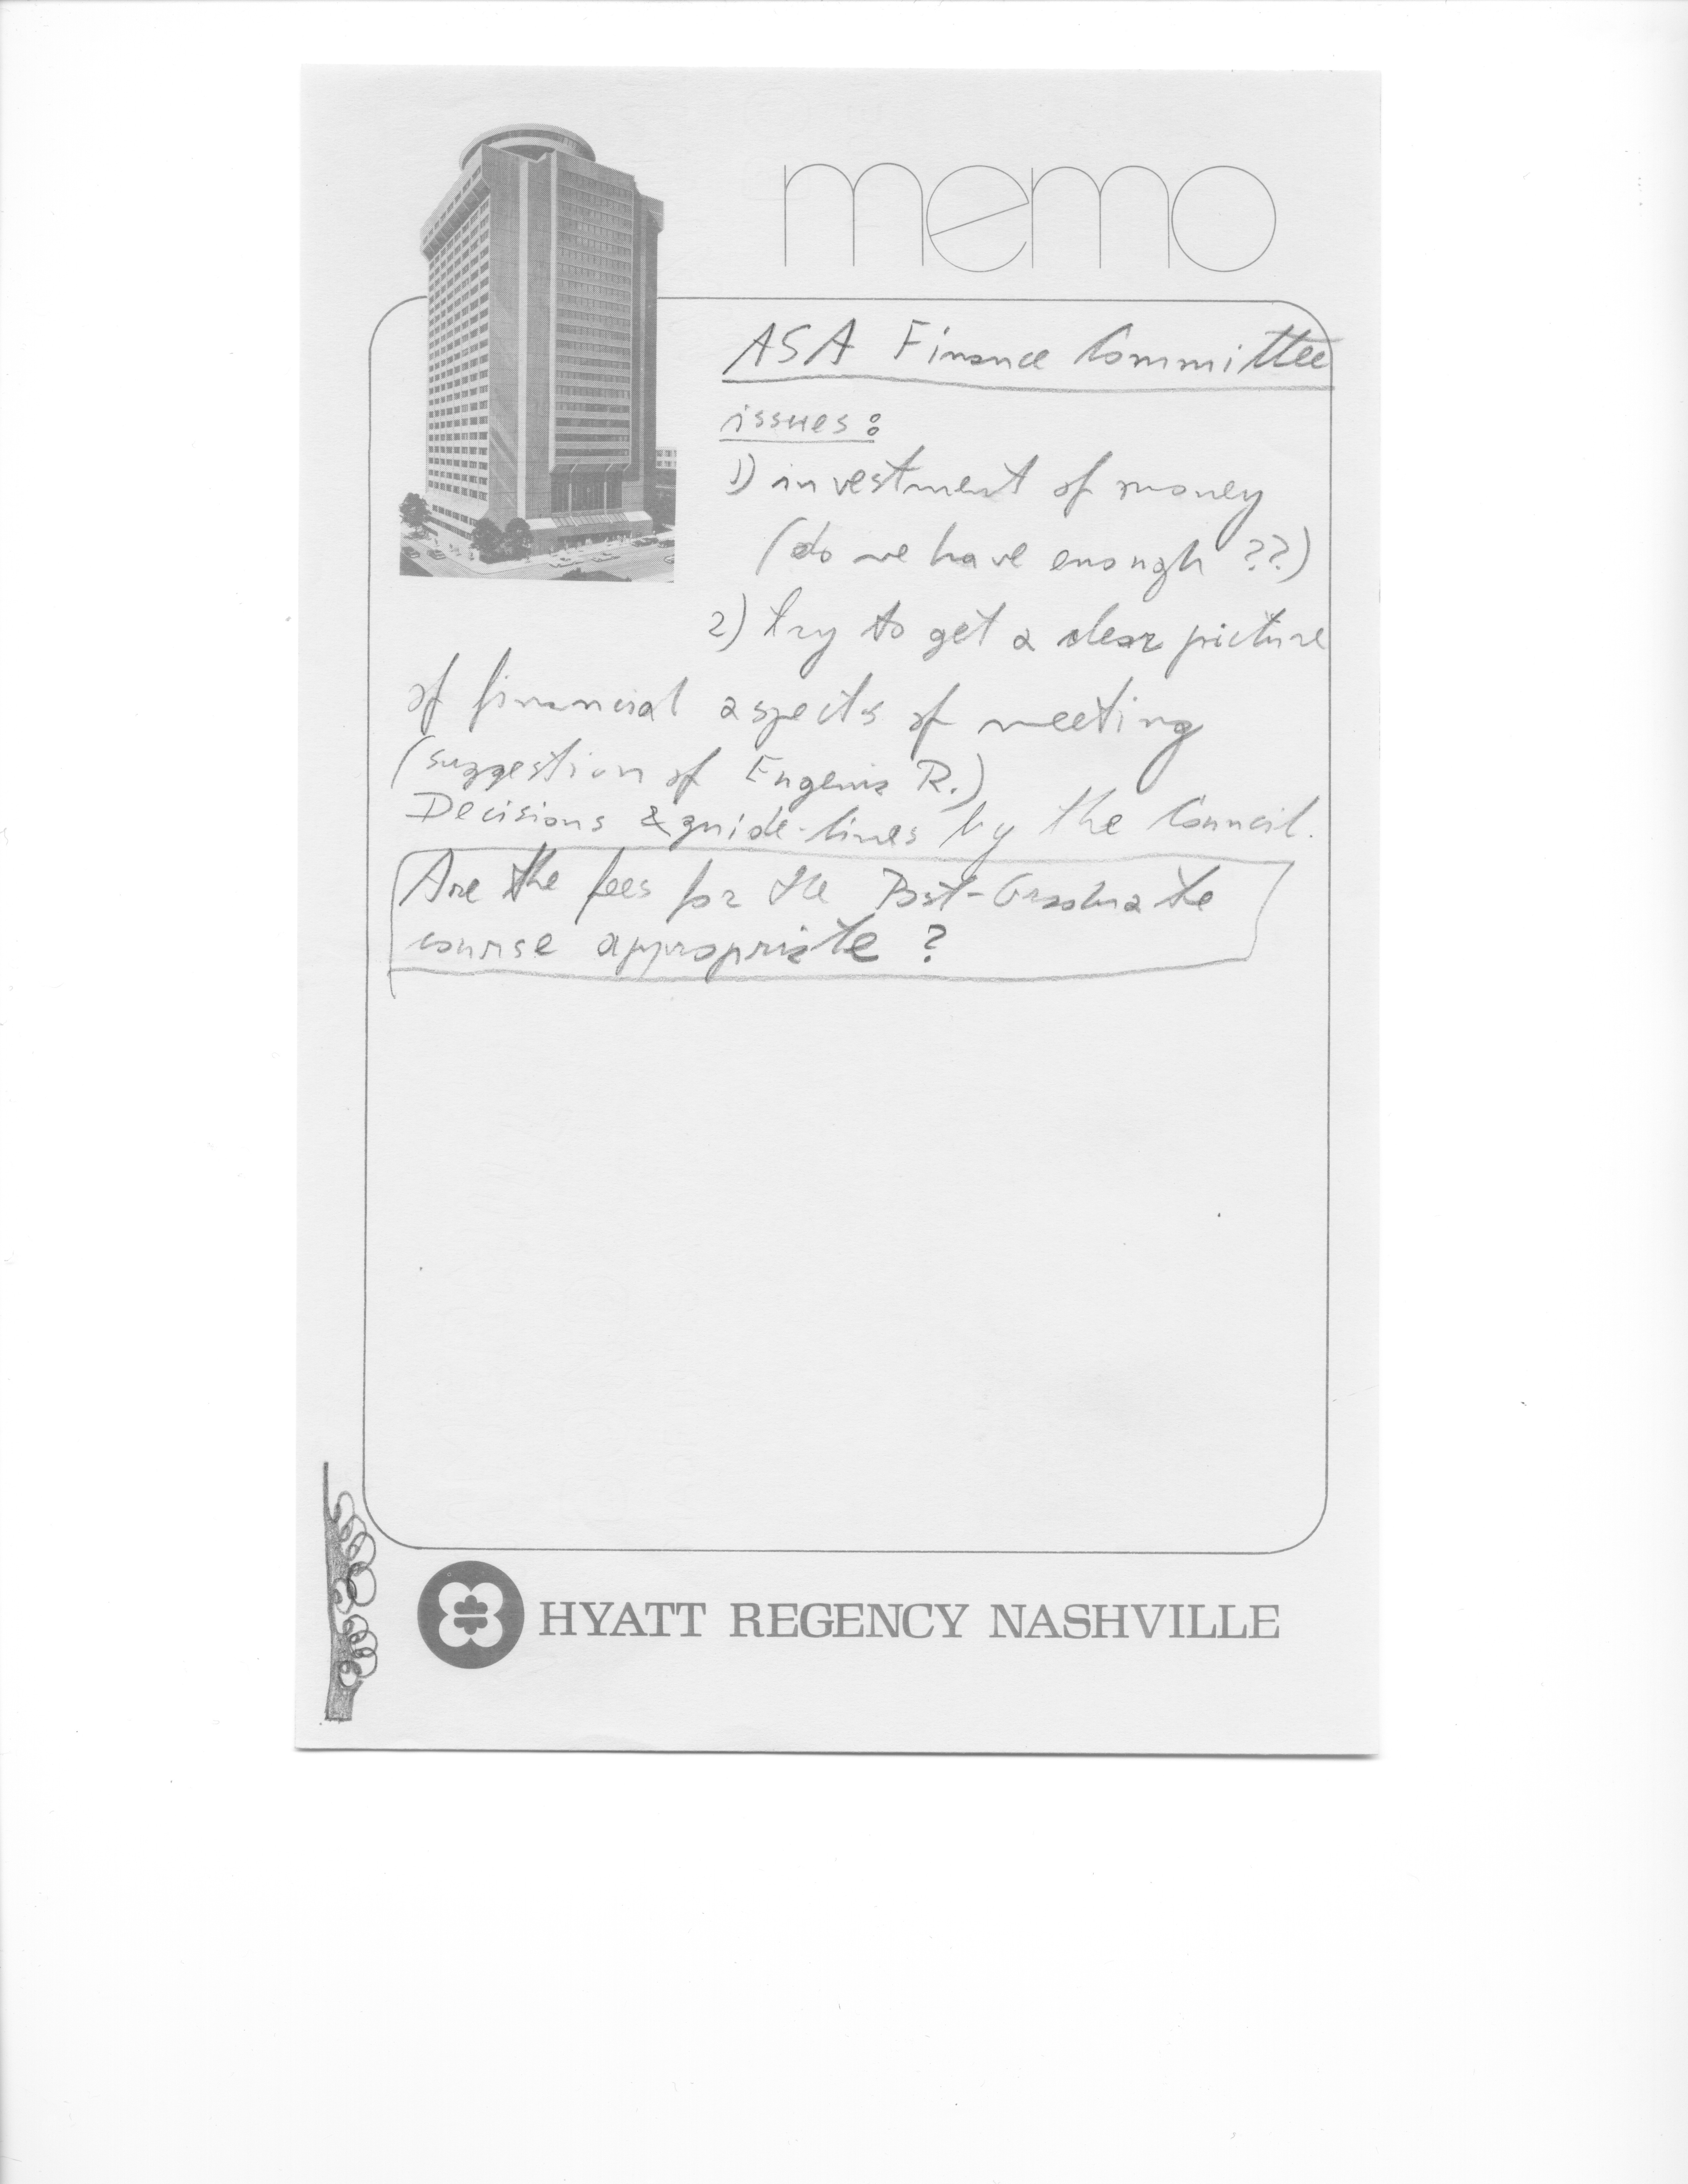 memo
ASA Finance Committee
issues:
1) investment of money
(do we have enough ??)
2) try to get a clear picture
of financial aspects of meeting
(suggestion of Eugenia R.)
Decisions & guide-lines by the Council.
Are the fees for the Post-Graduate
course appropriate ?
HYATT REGENCY NASHVILLE